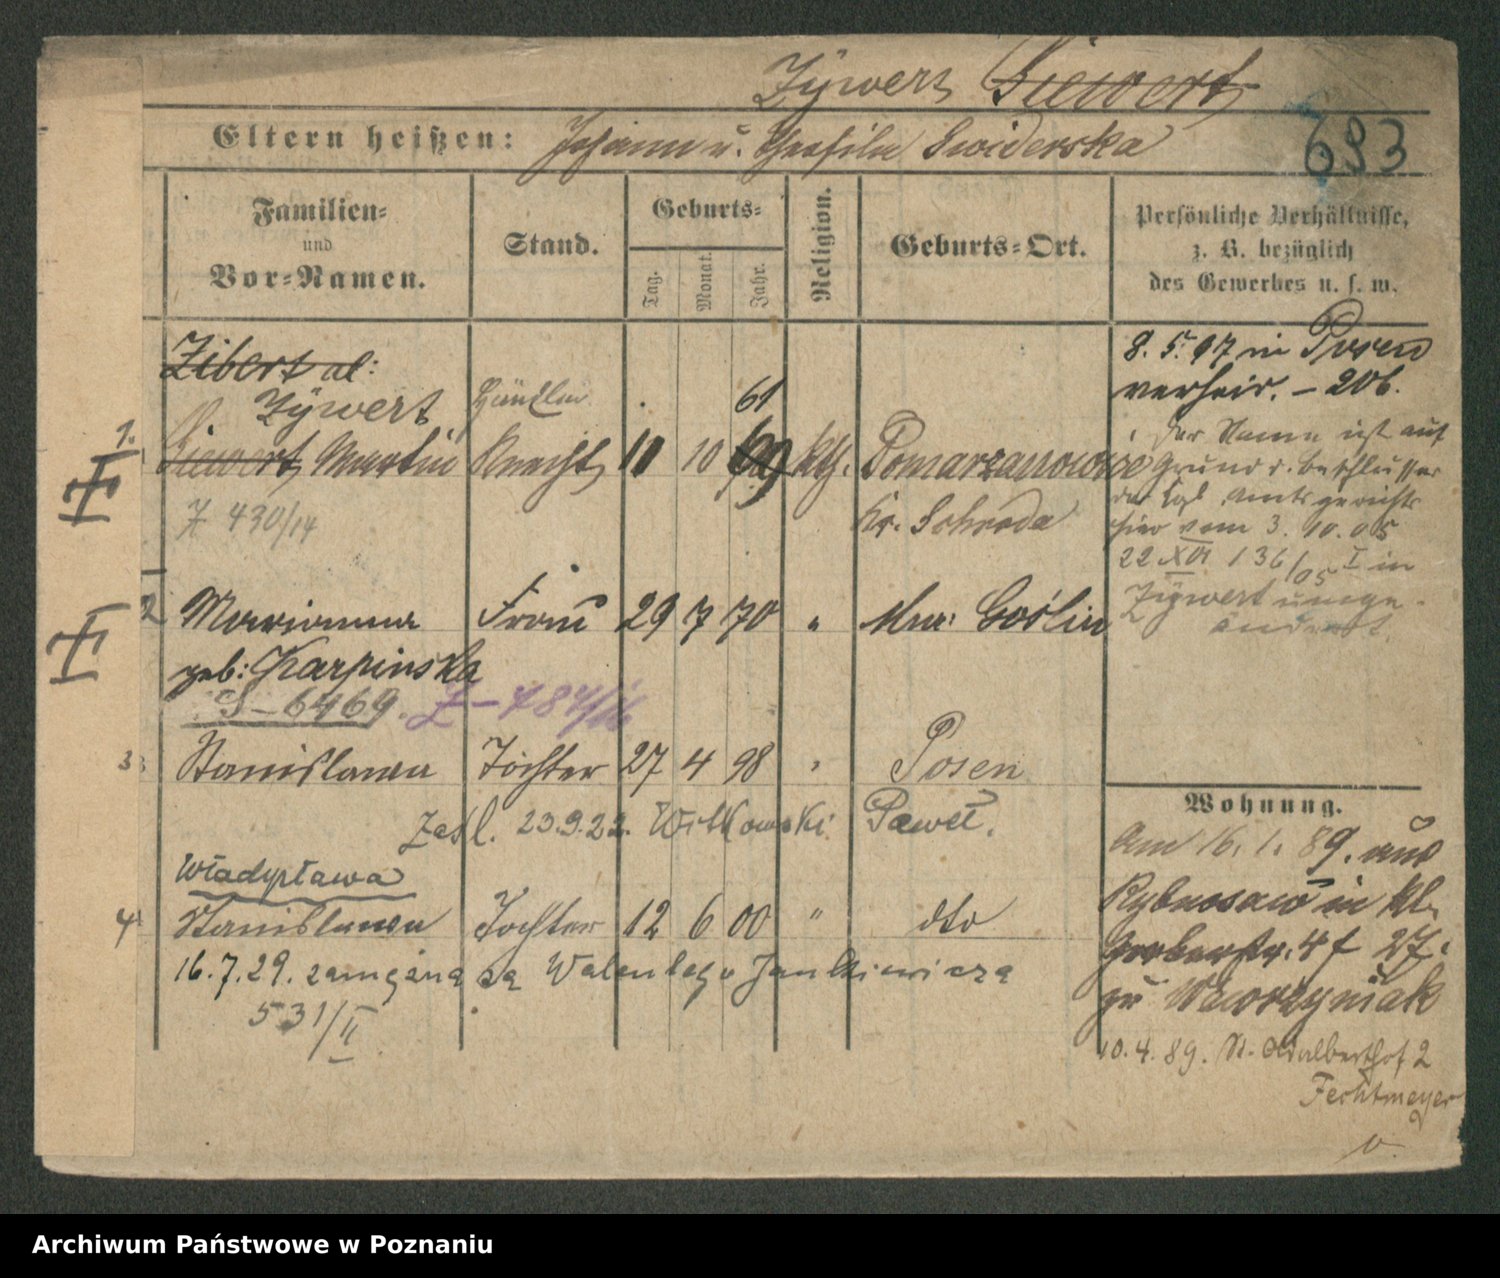 Zÿwert Siewert
Eltern heißen: Johann u. Theofila Swiderska
693
Familien- und Vor-Namen.
Stand.
Geburts-
Tag.
Monat.
Jahr.
Religion.
Geburts-Ort.
Persönliche Verhältnisse,
z. B. bezüglich
des Gewerbes u. s. w.
Zibert al:
Zÿwert Händler 61
1. Siewert Martin Knecht 11 10 69 kth. Pomarzanowice
Z 430/14 Kr. Schroda
8. 5. 97 in Posen
verheir. – 206.
Der Name ist auf
Grund d. Beschlusses
des Kgl. Amtsgerichts
hier vom 3. 10. 05
22 XVI 136/05 I in
Zÿwert umge-
ändert.
2 Marianna Frau 29 7 70 " Mur: Goślin
geb: Karpinska
S – 6469. Z – 784/
3 Stanislawa Tochter 27 4 98 " Posen
Zaśl. 23.9.22. Witkowski Paweł.
Władysława
4 Stanislawa Tochter 12 6 00 " dto
16.7.29. zamężna za Walentego Jankiewicza
531/II
Wohnung.
Am 16. 1. 89. aus
in Kl.
Gerberstr. 4 f 27.
zu Wawrzyniak
10. 4. 89. St. Adalberthof 2
Fechtmeyer
v.
Archiwum Państwowe w Poznaniu